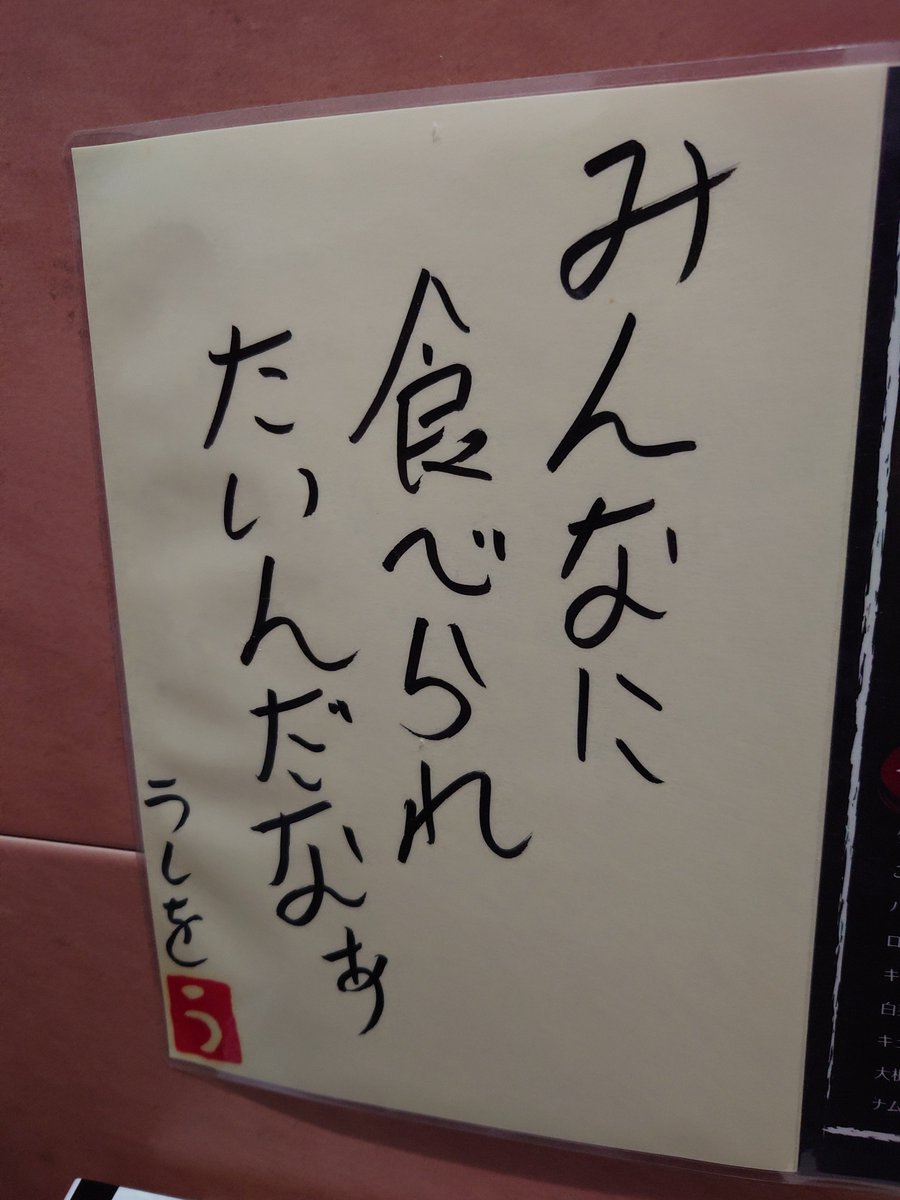 みんなに
食べられ
たいんだなぁ
うしを
う
ロ
キ
白
キ
大根
ナム